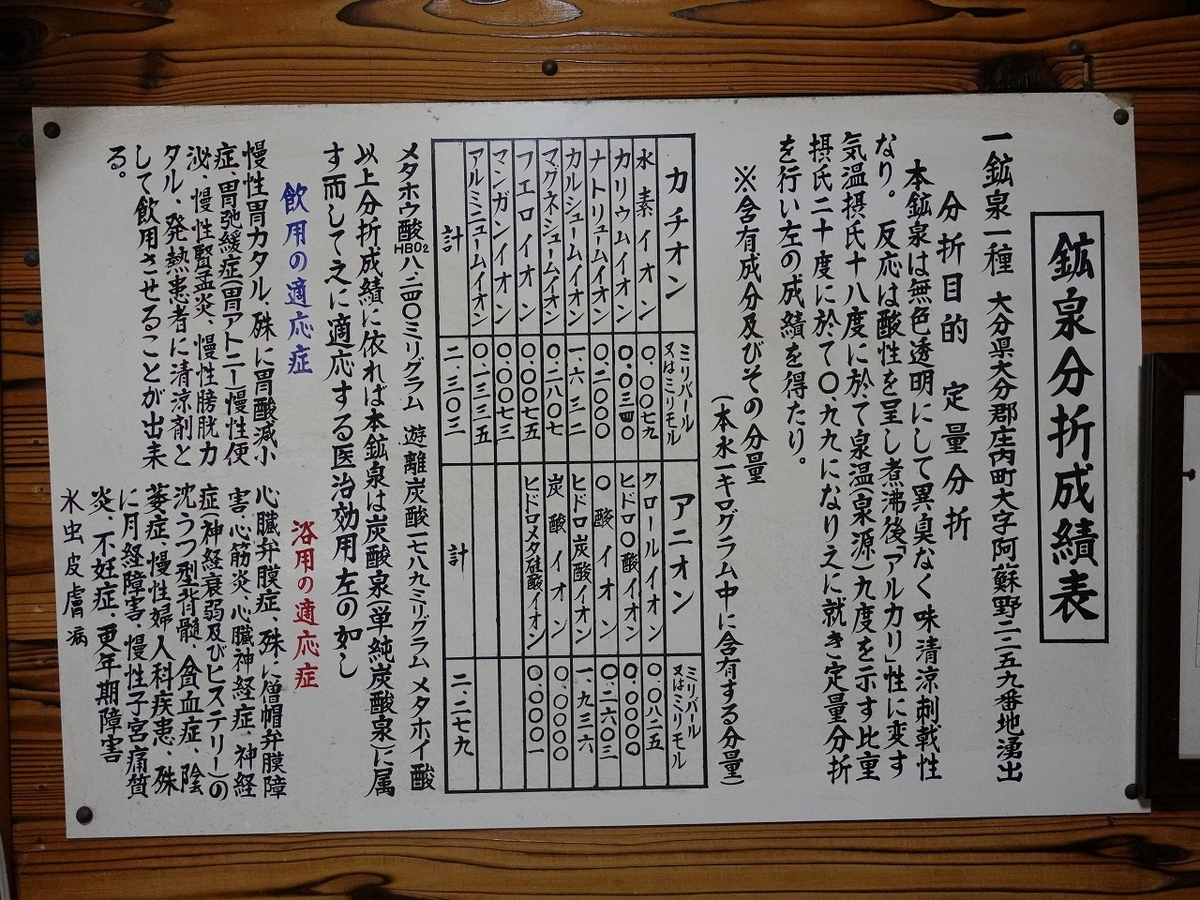 鉱泉分折成績表
一鉱泉一種 大分県大分郡庄内町大字阿蘇野二二五九番地湧出
分折目的 定量分折
本鉱泉は無色透明にして異臭なく味清涼刺戟性
なり。反応は酸性を呈し煮沸後「アルカリ」性に変す
気温摂氏十八度に於て泉温(泉源)九度を示す比重
摂氏二十度に於て〇.九九になりえに就き定量分折
を行い左の成績を得たり。
※含有成分及びその分量
(本水一キログラム中に含有する分量)
カチオン ミリバール又はミリモル アニオン ミリバール又はミリモル
水素イオン 〇.〇〇七九 クロールイオン 〇.〇八二五
カリウムイオン 〇.〇三四〇 ヒドロ〇酸イオン 〇.〇〇〇〇
ナトリュームイオン 〇.二〇〇〇 〇酸イオン 〇.二六〇三
カルシュームイオン 一.六一三二 ヒドロ炭酸イオン 一.九三六
マグネシュームイオン 〇.二八〇七 炭酸イオン 〇.〇〇〇〇
フエロイオン 〇.〇〇七五 ヒドロメタ硅酸イオン 〇.〇〇〇一
マンガンイオン 〇.〇〇七三
アルミニュームイオン 〇.一三三五
計 二.三〇三 計 二.二七九
メタホウ酸HBO₂八.二四〇ミリグラム 遊離炭酸一七八九ミリグラム メタホイ酸
以上分折成績に依れば本鉱泉は炭酸泉(単純炭酸泉)に属
す而してえに適応する医治効用左の如し
飲用の適応症
慢性胃カタル、殊に胃酸減小
症、胃弛緩症(胃アトニー)慢性便
泌、慢性腎盂炎、慢性膀胱カ
タル、発熱患者に清涼剤と
して飲用させることが出来
る。
浴用の適応症
心臓弁膜症、殊に僧帽弁膜障
害、心筋炎、心臓神経症、神経
症(神経衰弱及びヒステリー)の
沈うつ型背髄、貧血症、陰
萎症、慢性婦人科疾患、殊
に月経障害、慢性子宮痛質
炎、不妊症、更年期障害
水虫皮膚病